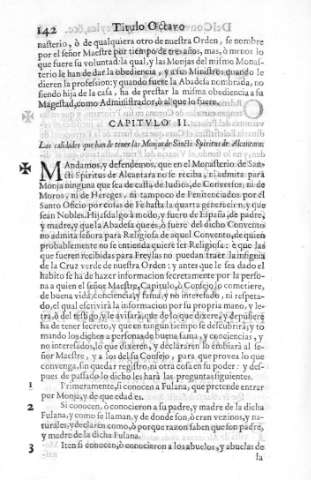 142 Titulo Octavo
nasterio, ò de qualquiera otro de nuestra Orden, se nombre
por el señor Maestre por tiempo de tres años, mas, ò menos lo
que fuere su voluntad: la qual, y las Monjas del mismo Monas-
terio le han de dar la obediencia, y a sus Ministros quando le
dieren la profession; y quando fuere la Abadesa nombrada, no
siendo hija de la casa, ha de prestar la misma obediencia a su
Magestad, como Administrador, ò al que lo fuere.
CAPITVLO II.
Las calidades que han de tener las Monjas de Sancti Spiritus de Alcantara.
MAndamos, y defendemos, que en el Monasterio de San-
cti Spiritus de Alcantara no se reciba, ni admita para
Monja ninguna que sea de casta de Iudios, de Conversos, ni de
Moros, ni de Hereges, ni tampoco de Penitenciados por el
Santo Oficio por cosas de Fe hasta la quarta generacion, y que
sean Nobles Hijasdalgo à modo, y fuero de España, de padre,
y madre, y que la Abadesa que es, ò fuere del dicho Convento
no admita señora para Religiosa de aquel Convento, de quien
probablemente no se entienda quiere ser Religiosa: è que las
que fueren recibidas para Freylas no puedan traer la insignia
de la Cruz verde de nuestra Orden; y antes que le sea dado el
habito se ha de hazer informacion secretamente por la perso-
na a quien el señor Maestre, Capitulo, ò Consejo lo cometiere,
de buena vida, conciencia, y fama, y no interesado, ni respeta-
do, el qual escrivirà la informacion por su propria mano, y le-
tra, ò del testigo, y le avisarà, que de lo que dixere, y depusiere
ha de tener secreto, y que en ningun tiempo se descubrirà, y to
mando los dichos a personas de buena fama, y conciencias, y
no interesados, lo que dixeren, y declararen lo embiarà al se-
ñor Maestre, y a los del su Consejo, para que provea lo que
convenga, sin quedar registro, ni otra cosa en su poder: y des-
pues de passado lo dicho les harà las preguntas siguientes.
1 Primeramente, si conocen a Fulana, que pretende entrar
por Monja, y de que edad es.
2 Si conocen, ò conocieron a su padre, y madre de la dicha
Fulana, y como se llaman, y de donde son, ò eran vezinos, y na-
turales, y declaren como, ò porque razon saben que son padre,
y madre de la dicha Fulana.
3 Iten si conocen, ò conocieron a los abuelos, y abuelas de
la